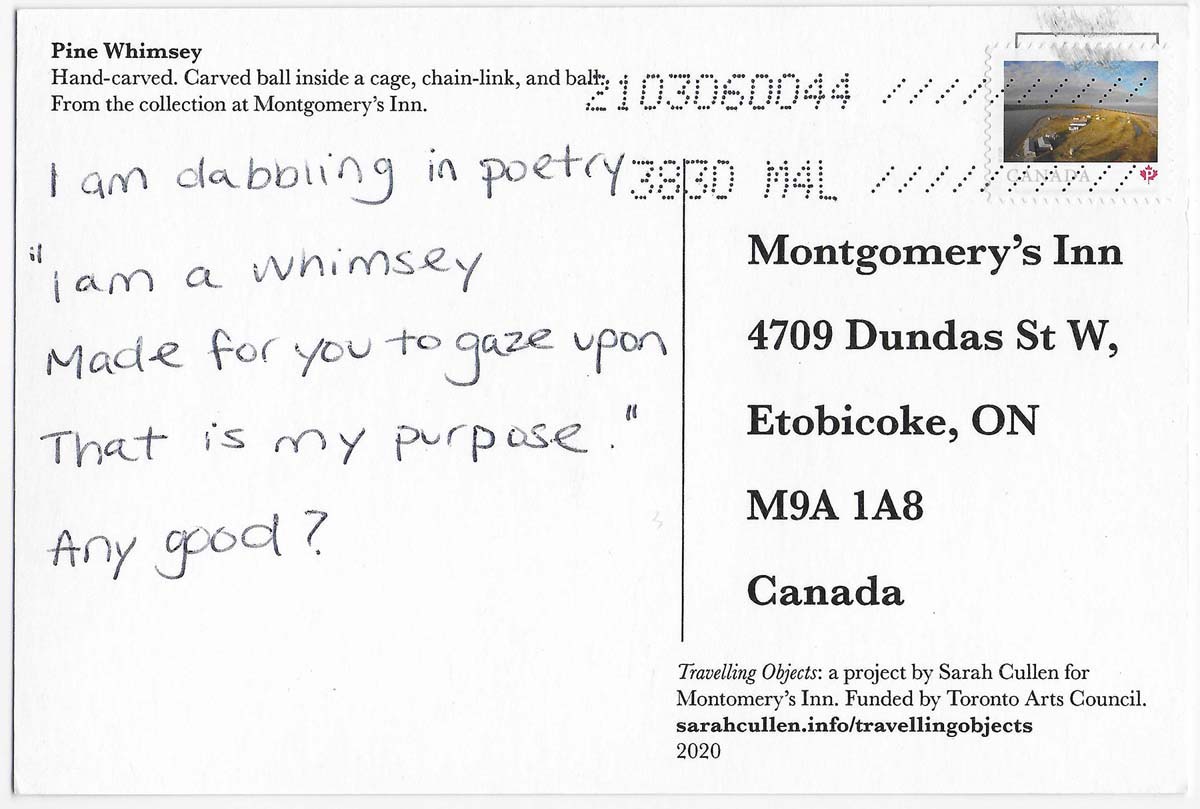 Pine Whimsey
Hand-carved. Carved ball inside a cage, chain-link, and ball.
From the collection at Montgomery's Inn.
2103060044 /////////////
3830 M4L /////////////
CANADA P
I am dabbling in poetry
"I am a whimsey
Made for you to gaze upon
That is my purpose."
Any good?
Montgomery's Inn
4709 Dundas St W,
Etobicoke, ON
M9A 1A8
Canada
Travelling Objects: a project by Sarah Cullen for
Montomery's Inn. Funded by Toronto Arts Council.
sarahcullen.info/travellingobjects
2020